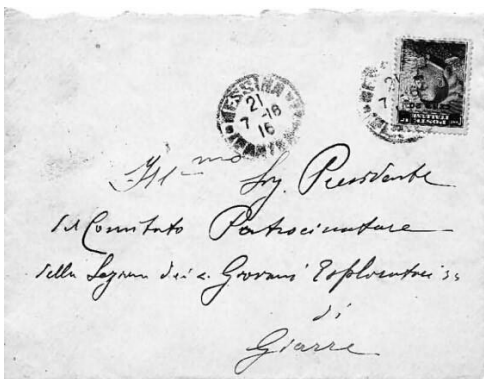 MESSINA
21
7-16
15
POSTE
ITALIANE
21
7
Ill.mo Sig. Presidente
del Comitato Patrocinatore
della Sezione dei "Giovani Esploratori"
di
Giarre